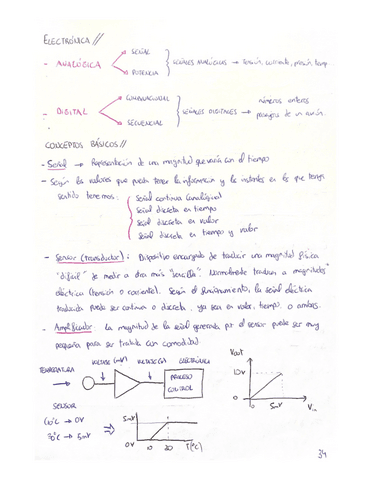 ELECTRÓNICA //
- ANALÓGICA
SEÑAL
POTENCIA
SEÑALES ANALÓGICAS → tensión, corriente, presión, temp
- DIGITAL
COMBINACIONAL
SECUENCIAL
SEÑALES DIGITALES → números enteros
CONCEPTOS BÁSICOS //
- Señal → Representación de una magnitud que varía con el tiempo
- Según los valores que puede tener la información y los instantes en los que tenga
sentido tenemos:
Señal continua (analógica)
Señal discreta en tiempo
Señal discreta en valor
Señal discreta en tiempo y valor
- Sensor (transductor): Dispositivo encargado de traducir una magnitud física
"difícil" de medir a otra más "sencilla". Normalmente traducen a magnitudes
eléctrica (tensión o corriente). Según el funcionamiento, la señal eléctrica
traducida puede ser continua o discreta, ya sea en valor, tiempo, o ambos.
- Amplificador: La magnitud de la señal generada por el sensor puede ser muy
pequeña para ser tratada con comodidad.
TEMPERATURA
VOLTAJE (mV)
VOLTAJE (V)
ELECTRÓNICA
PROCESO
CONTROL
SENSOR
→ 0V
→ 5mV
5mV
0V
0
20
T(ºC)
Vout
10V
0
5mV
Vin
34